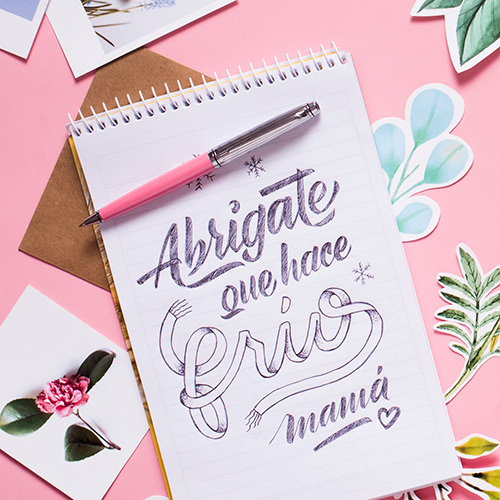 Abrigate
que hace
frio
mamá